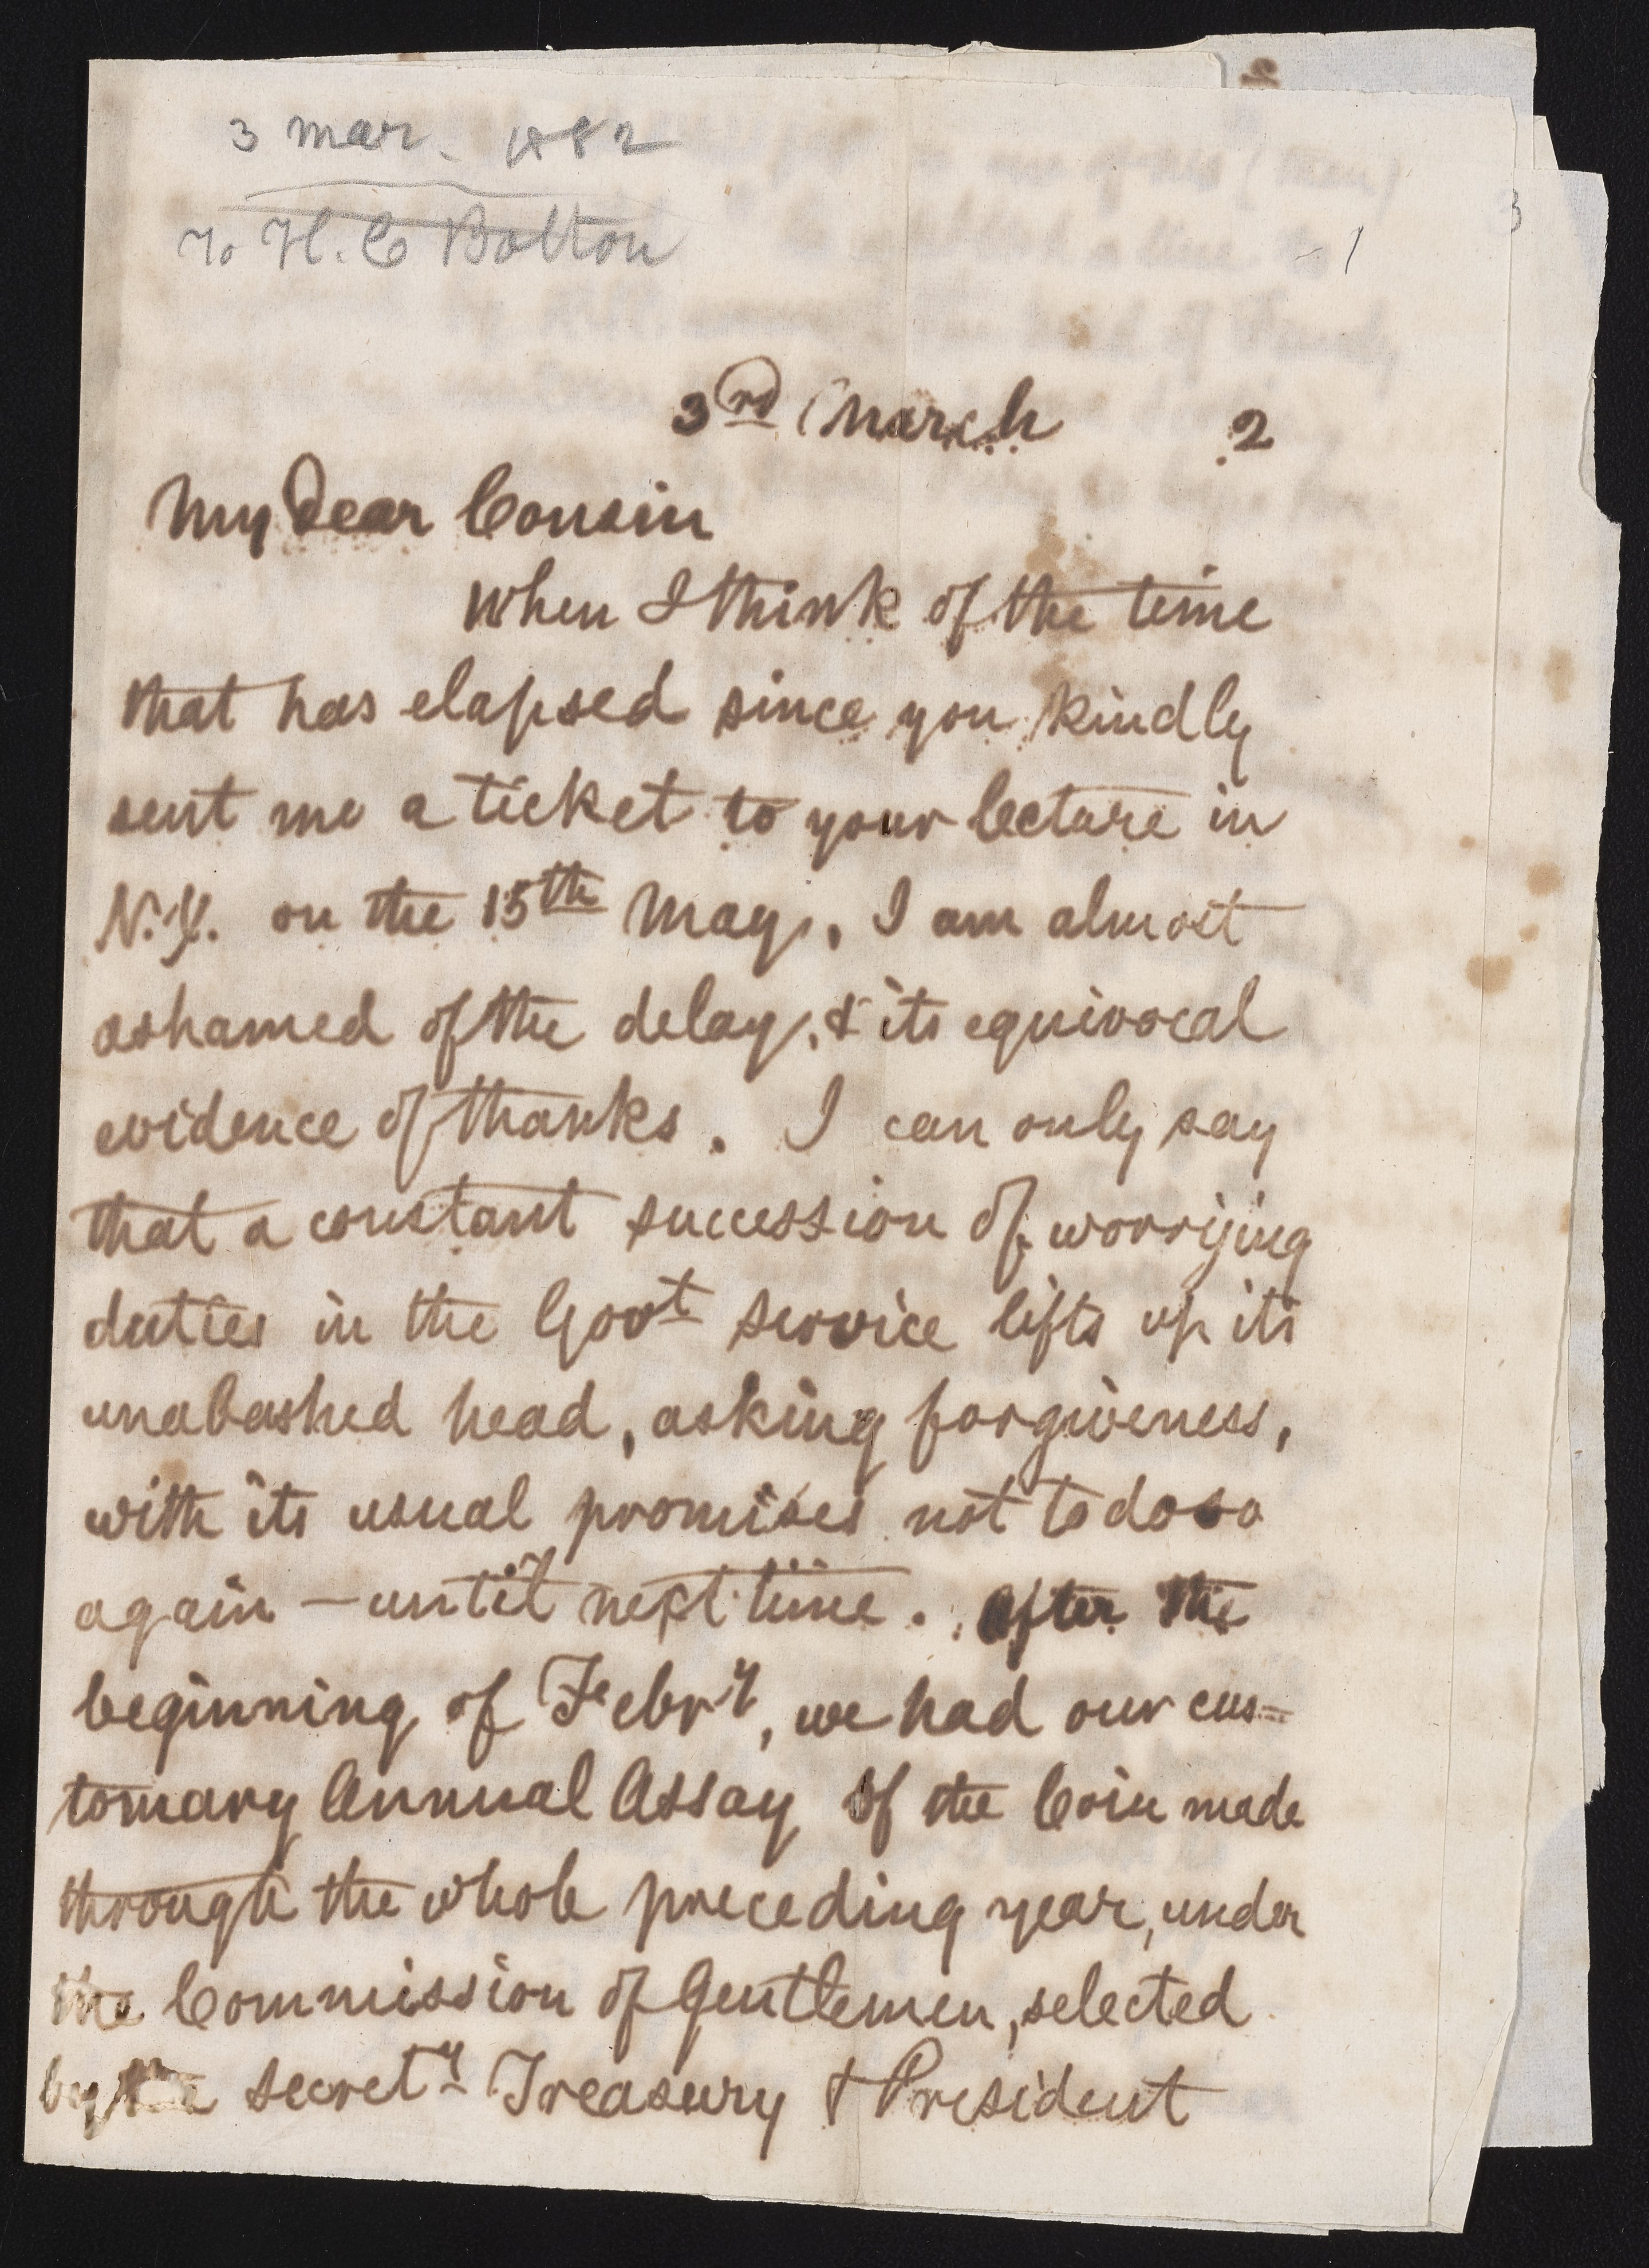 3 mar. 1882
To H. C Bolton
- 1
3
3rd March 2
My Dear Cousin
When I think of the time
that has elapsed since you kindly
sent me a ticket to your lecture in
N.Y. on the 15th May, I am almost
ashamed of the delay, & its equivocal
evidence of thanks. I can only say
that a constant succession of worrying
duties in the Govt service lifts up its
unabashed head, asking forgiveness,
with its usual promises not to do so
again - until next time. After the
beginning of Febry, we had our cus=
tomary Annual Assay of the Coin made
through the whole preceding year, under
the Commission of Gentlemen, selected
by the Secrety Treasury & President